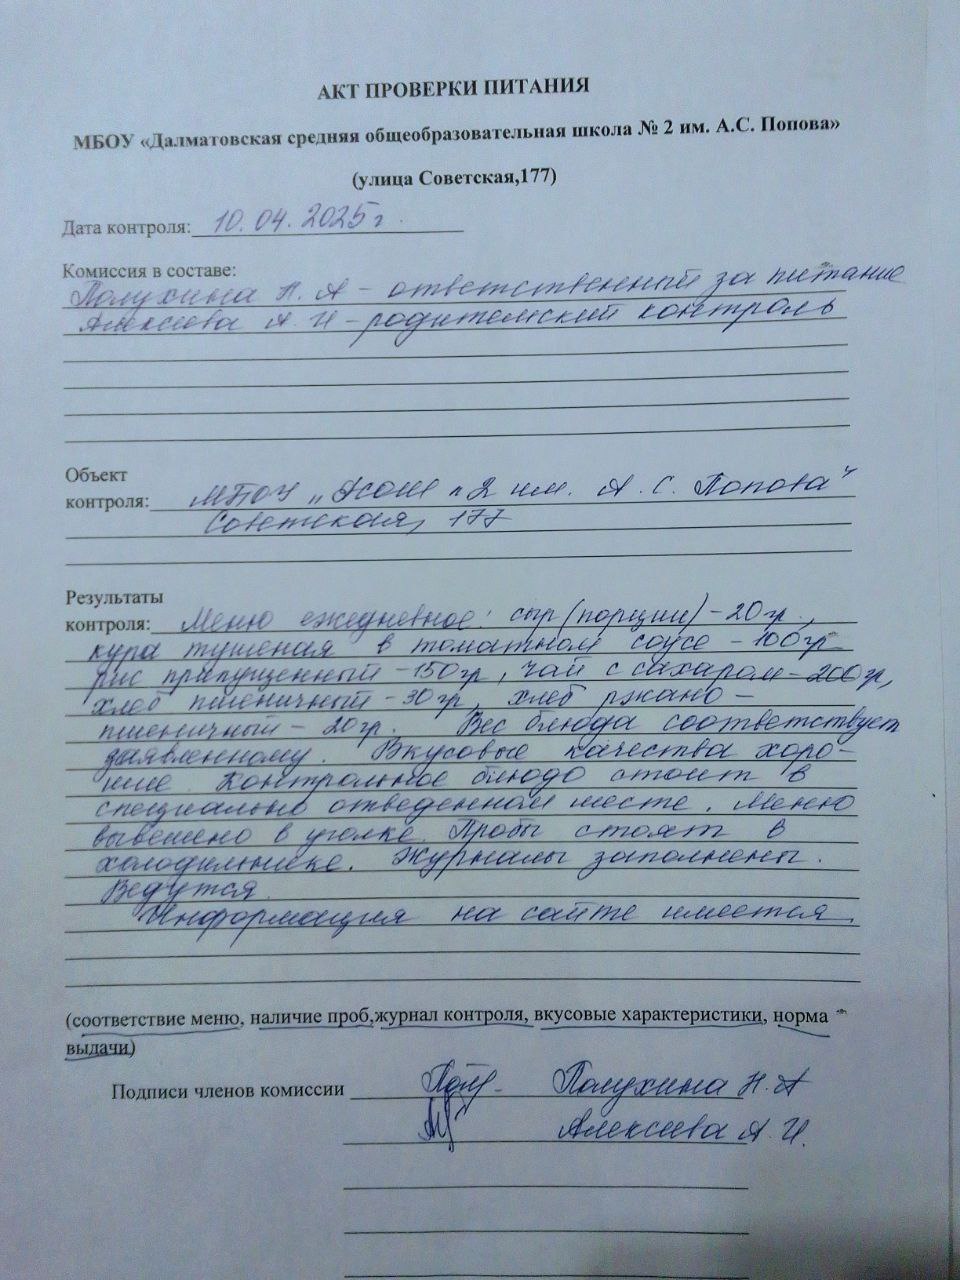 АКТ ПРОВЕРКИ ПИТАНИЯ
МБОУ «Далматовская средняя общеобразовательная школа № 2 им. А.С. Попова»
(улица Советская,177)
Дата контроля: 10.04.2025г.
Комиссия в составе:
Полухина Н. А – ответственный за питание
Алексеева А. И – родительский контроль
Объект
контроля: МБОУ „ДСОШ № 2 им. А. С. Попова"
Советская, 177
Результаты
контроля: Меню ежедневное: сыр (порции) – 20 гр.,
кура тушеная в томатном соусе – 100 гр
рис припущенный – 150 гр, чай с сахаром – 200 гр,
хлеб пшеничный – 30 гр, хлеб ржано –
пшеничный – 20 гр. Вес блюда соответствует
заявленному. Вкусовые качества хоро–
шие. Контрольное блюдо стоит в
специально отведенном месте. Меню
вывешено в уголке. Пробы стоят в
холодильнике. Журналы заполнены.
Ведутся.
Информация на сайте имеется.
(соответствие меню, наличие проб,журнал контроля, вкусовые характеристики, норма
выдачи)
Подписи членов комиссии Полухина Н. А
Алексеева А. И.